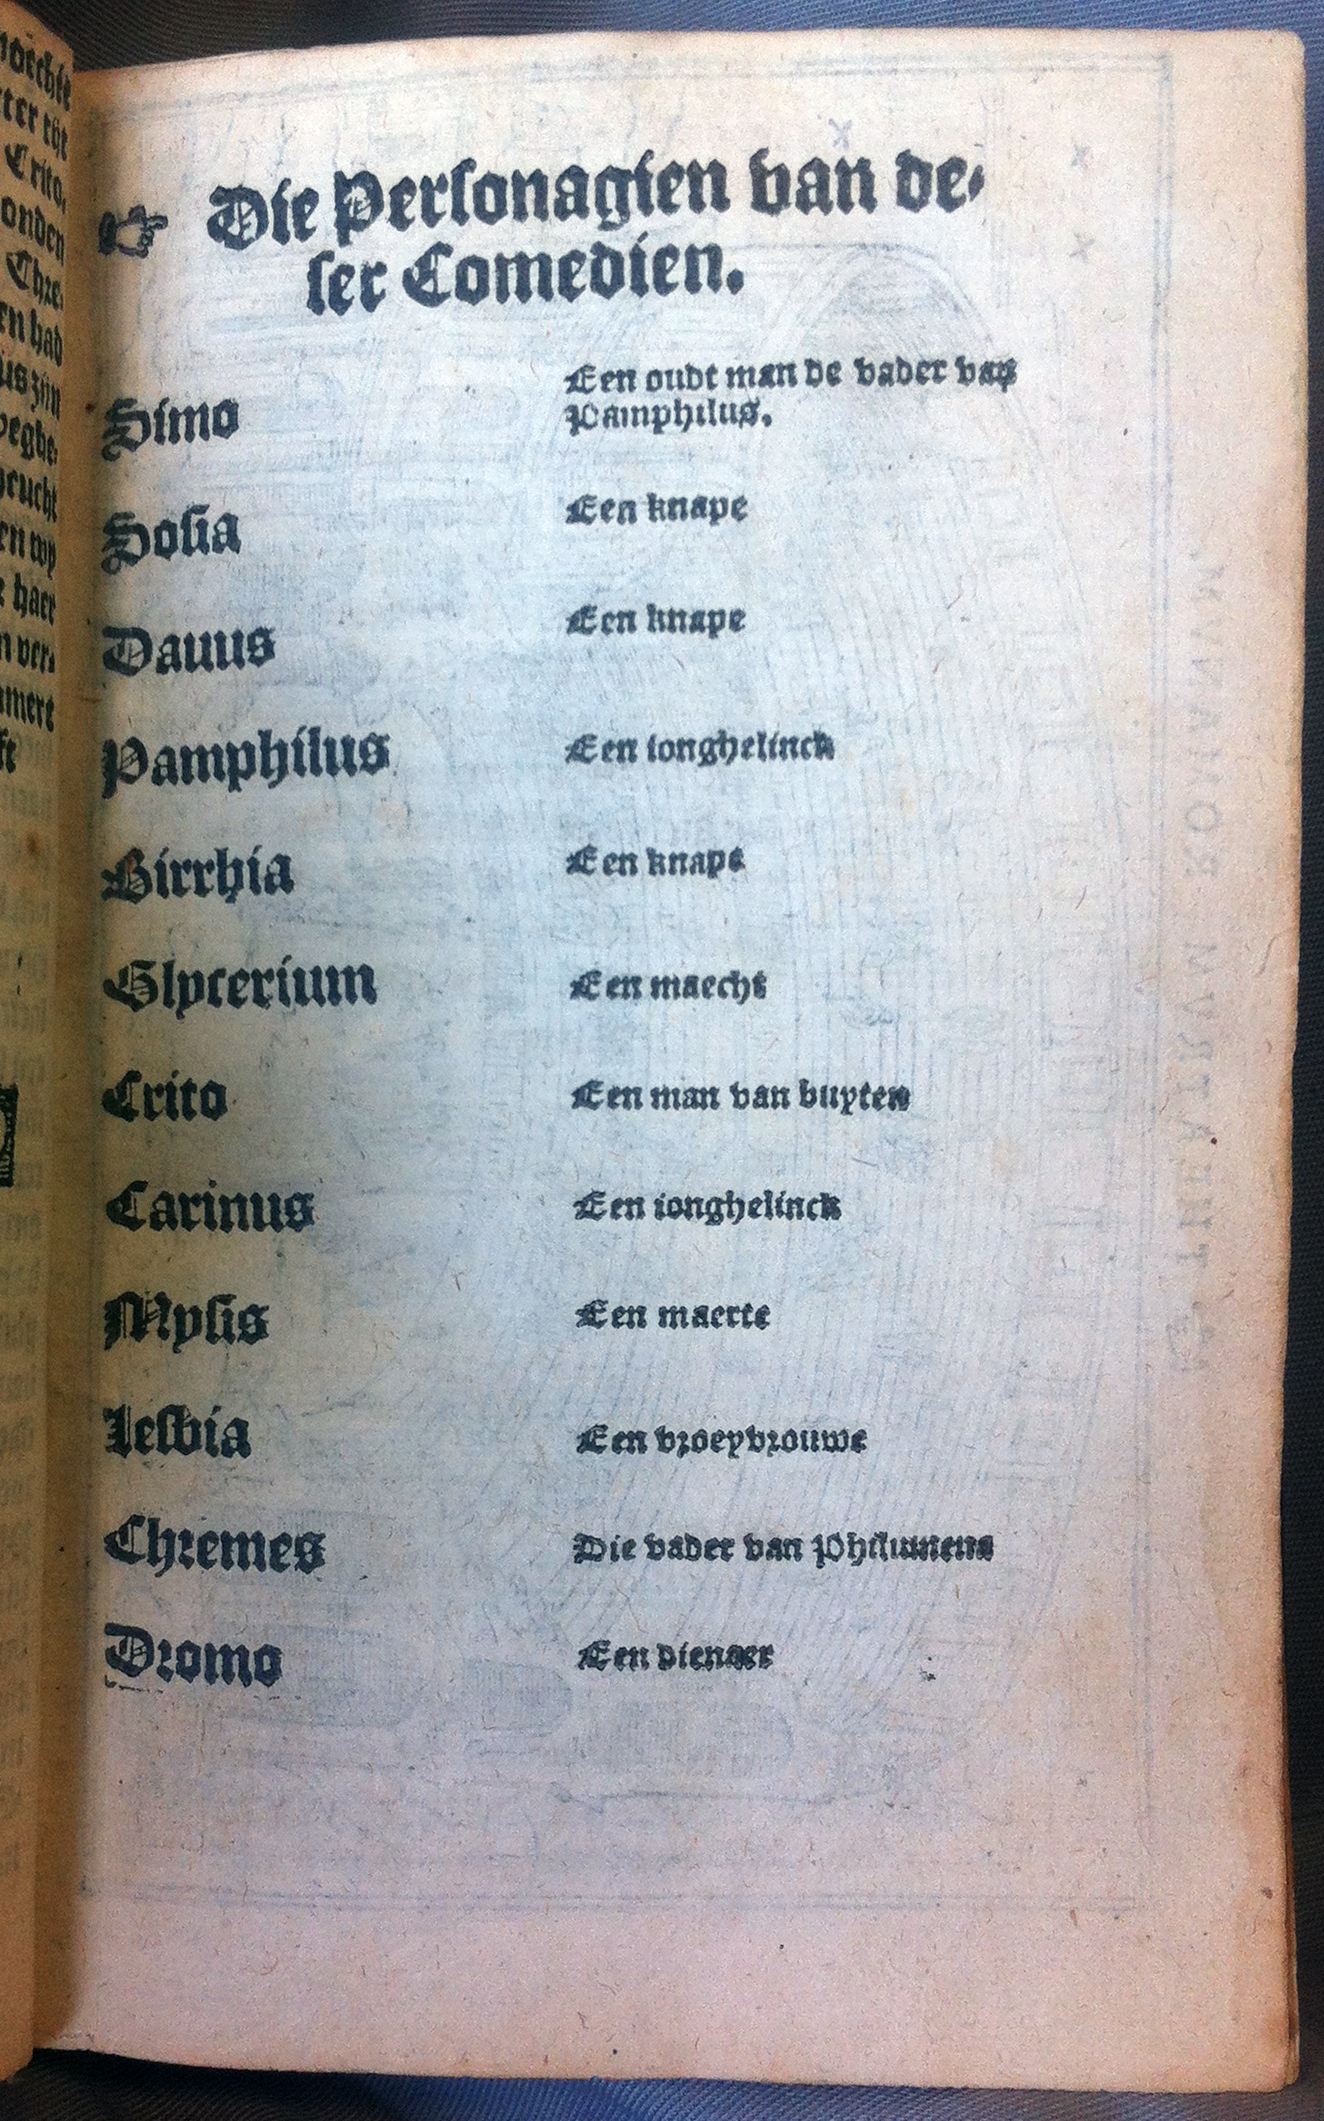 ☞ Die Personagien van de-
ser Comedien.
Simo Een oudt man de vader van
Pamphilus.
Sosia Een knape
Dauus Een knape
Pamphilus Een ionghelinck
Birrhia Een knape
Glycerium Een maecht
Crito Een man van buyten
Carinus Een ionghelinck
Mysis Een maerte
Lesbia Een vroeyvrouwe
Chremes Die vader van Philumena
Dromo Een dienaer